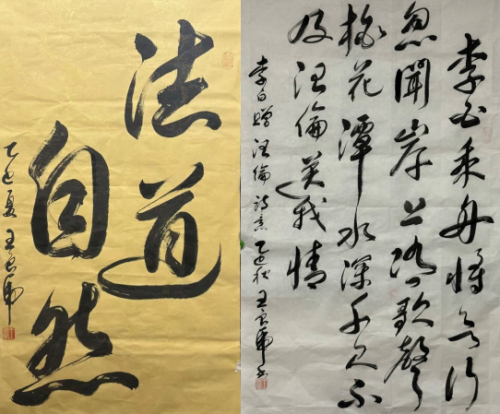 法道
自然
乙巳夏 王良虎
李白乘舟將欲行
忽聞岸上踏歌聲
桃花潭水深千尺不
及汪倫送我情
李白贈汪倫詩意 乙巳秋 王良虎书